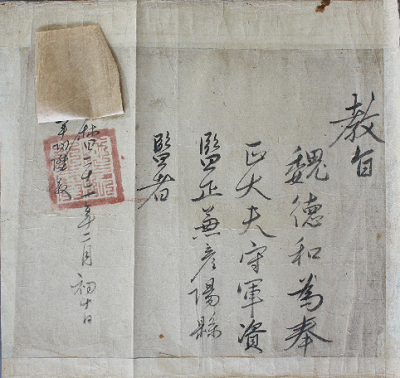 教旨
魏德和為奉
正大夫守軍資
監正兼彦陽縣
監者
年二月初十日